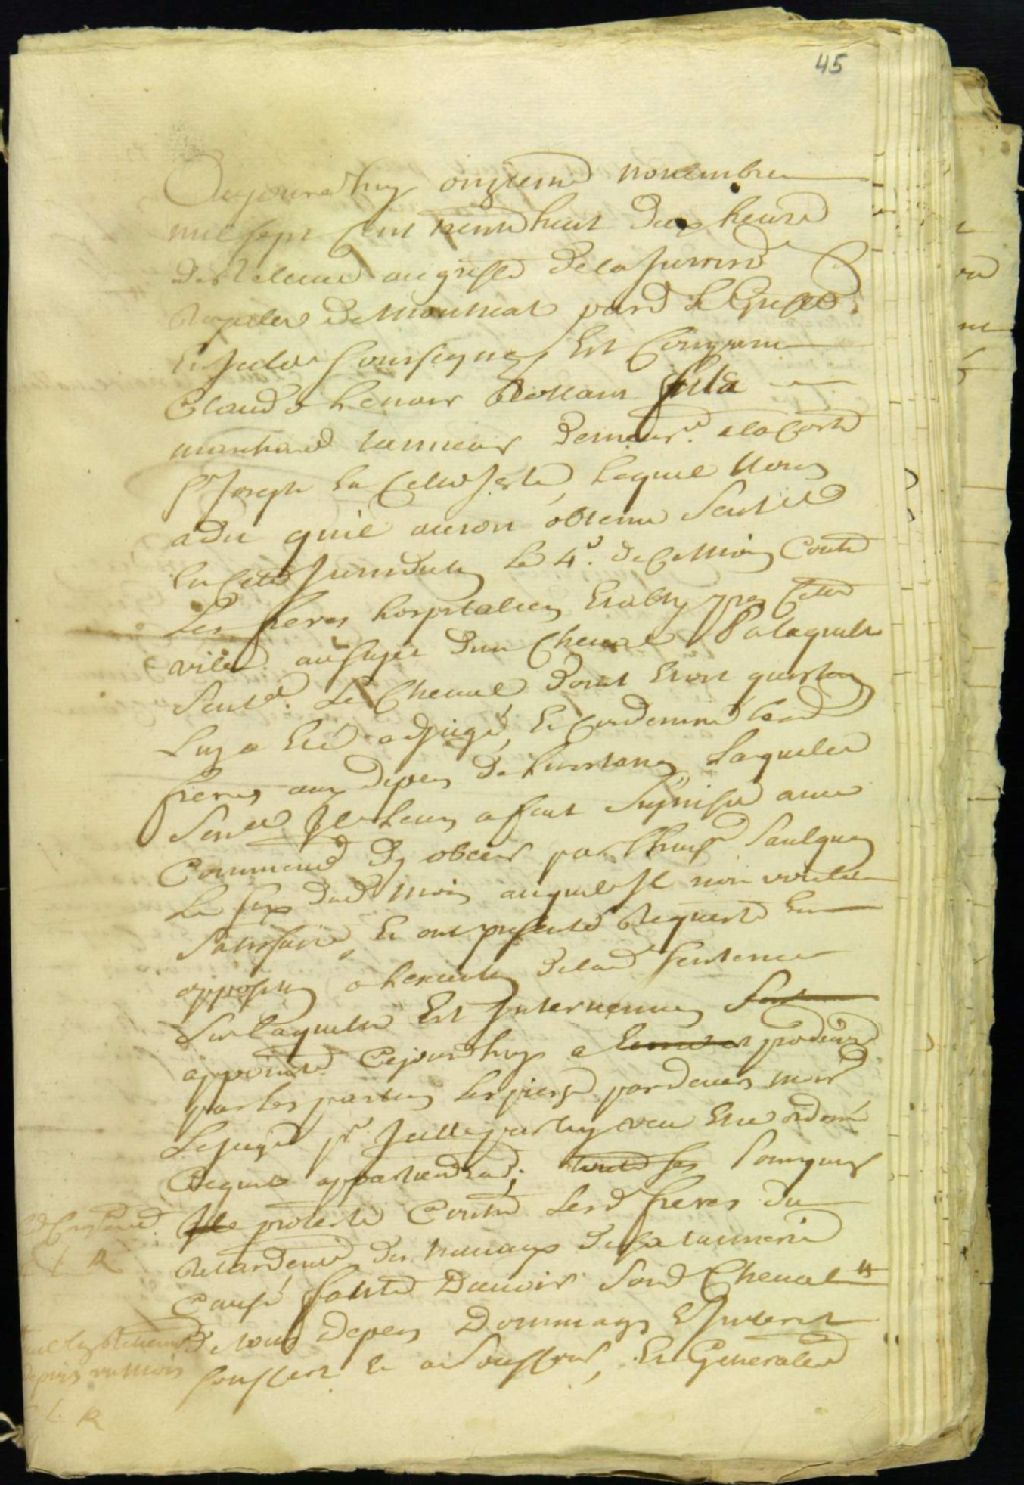 45
Aujourd'huy onzieme novembre
mil sept Cent trente huit deux heures
de Relevée au greffe de la Jurisd
Royalle de Montreal pard Le Greffier
Est Comparu
Claude Lenoir Rolland
marchand tanneur demeurt. a la Coste
St Joseph en Cette Isle, Lequel Nous
a dit quil auroit obtenu Sentce
En Cette Jurisdiction Le 4e. de Ce Mois Contre
Les freres hospitaliers Establys en Cette
ville au sujet d'un Cheval Par laquelle
Sentce. Le Cheval dont Etoit question
Luy a Eté adjugé, Et Condemné lesd
freres aux depens de Linstance Laquelle
Sentce Il Leur a fait Signifier avec
Commend. dy obeir par Lhuissr Saulquin
Le six dud. Mois auquel Il n'on voulu
Satisfaire, Et ont presenté Requeste En
opposition a Lexecution de lad Sentence
Sur Laquelle Est Intervenu
appointé Cejourdhuy a produire
par les parties Les pieces pardevers mond.
Le juge pr Icelle par luy veu Etre ordoné
Ceque appartiendra; Pourquoy
proteste Contre Lesd freres du
Retardemt des travaux de Sa tannerie
Causé faute Davoir Sond Cheval
De tous depens Dommages Interest
Souffert Et a Souffrir, Et Generalemt
L R
depuis un mois
L R